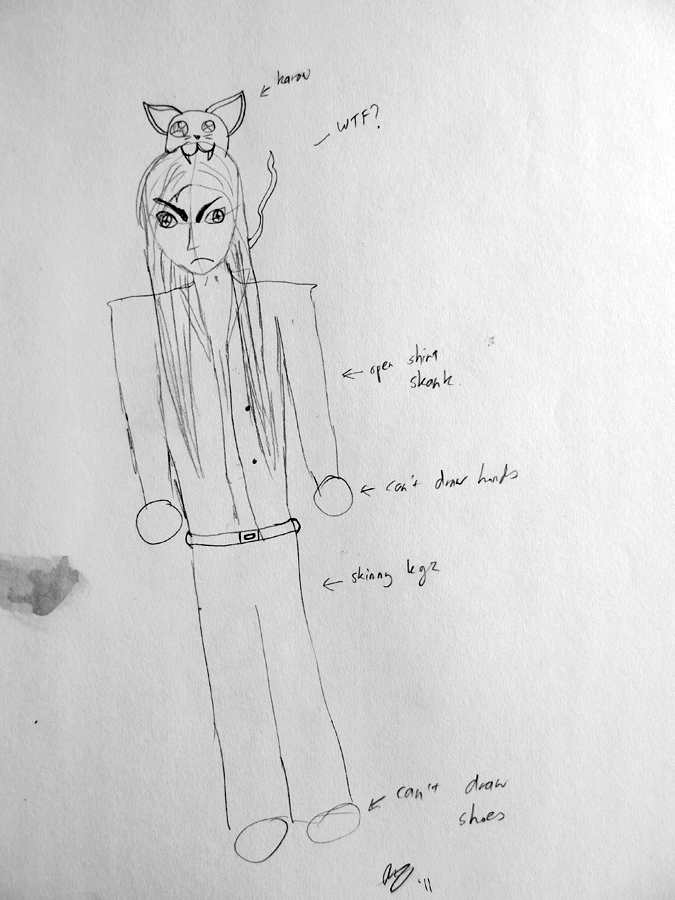 WTF?
open shirt
skank.
can't draw hands
skinny legz
can't draw
shoes
'11